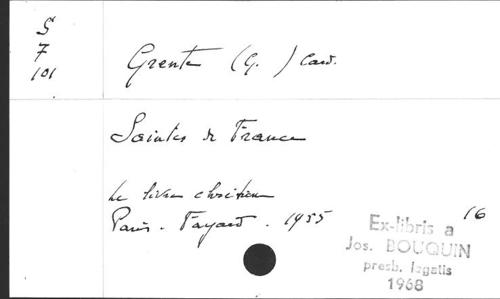 S
7
101
Grente (G.) Card.
Saintes de France
Le livre chrétien
Paris. Fayard. 1955
16
Ex-libris a
Jos. BOUQUIN
presb. legatis
1968